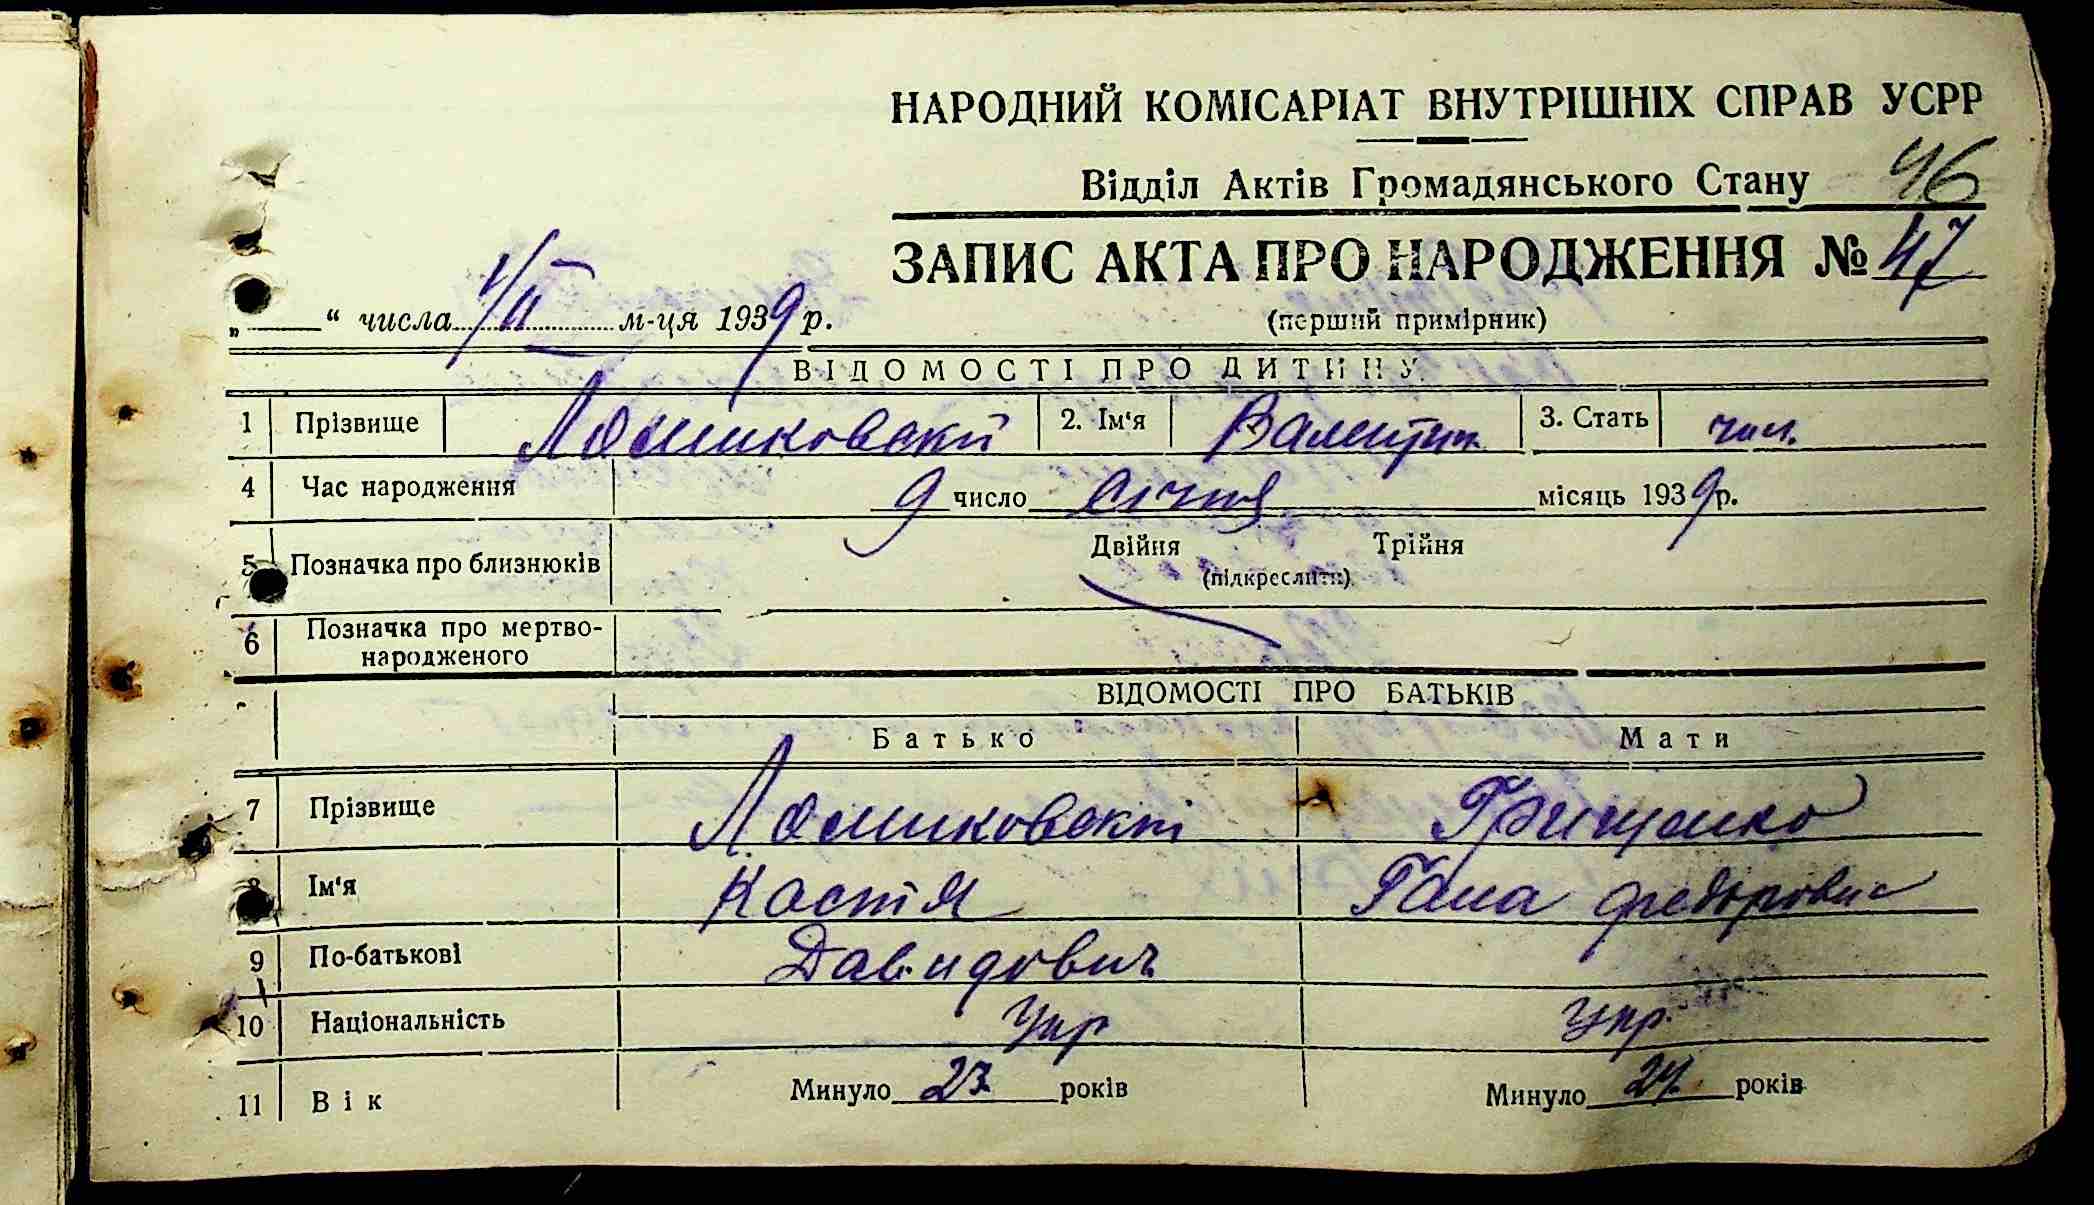 НАРОДНИЙ КОМІСАРІАТ ВНУТРІШНІХ СПРАВ УСРР
Відділ Актів Громадянського Стану 46
ЗАПИС АКТА ПРО НАРОДЖЕННЯ № 47
„ “ числа 1/II м-ця 1939 р.
(перший примірник)
ВІДОМОСТІ ПРО ДИТИНУ
1 Прізвище Ломиковскй 2. Ім‘я Валентин 3. Стать чол.
4 Час народження 9 число січня місяць 1939 р.
5 Позначка про близнюків Двійня Трійня
(підкреслити)
6 Позначка про мертво-
народженого
ВІДОМОСТІ ПРО БАТЬКІВ
Батько Мати
7 Прізвище Ломиковскі Грищенко
8 Ім‘я Костя Гана Федоровна
9 По-батькові Давидович
10 Національність Укр Укр.
11 Вік Минуло 23 років Минуло 24 років